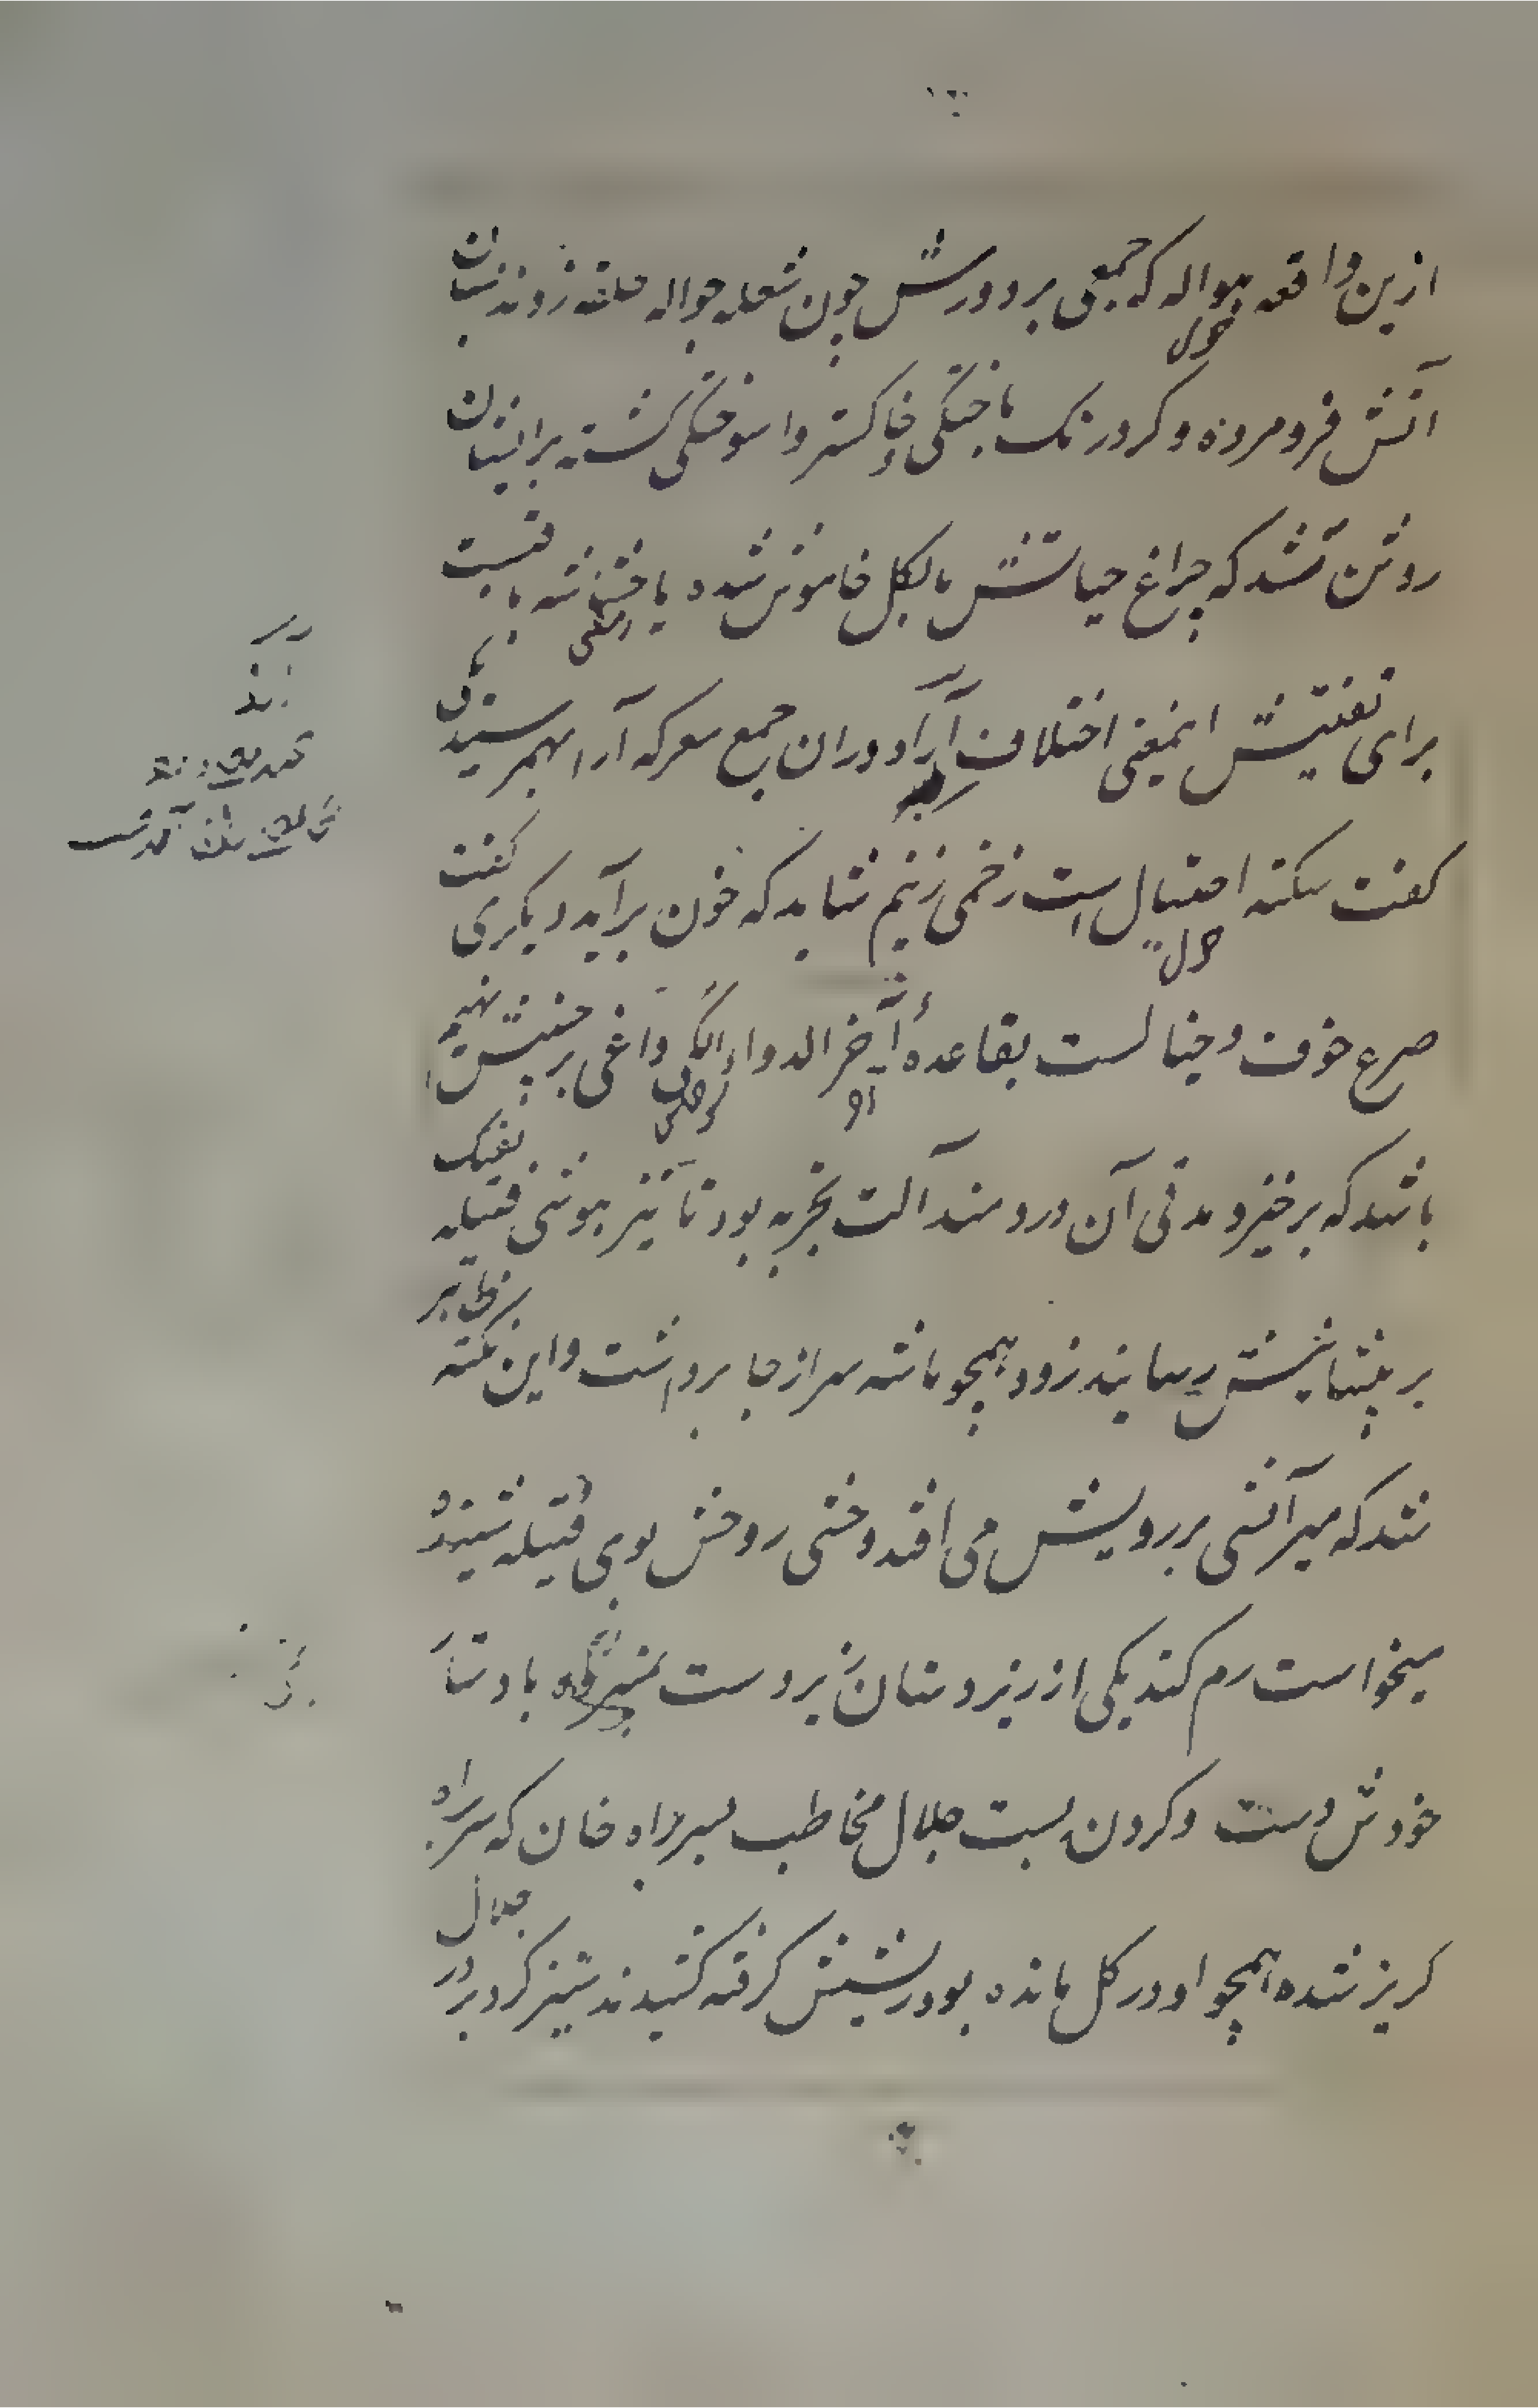 ازین واقعه هواله که جمعی بر دورش چون شعله جواله حلقه زدند بسان
آتش فرو مرده و کرد رنک باختکی خاکستر واسوختکی کشته بر ایشان
روشن نشد که چراغ حیاتش بالکل خاموش شده یا خفته بایست
برای تفتیش اینمعنی اختلاف آرا دران جمع معرکه آرا بهم رسید یکی
کفت سکته احتمال است زخمی زنیم شاید که خون برآید دیکری کفت
صرع خوف و خیالست بقاعده آخر الدواء الکی داغی بر جبینش نهیم
باشد که برخیزد مدتی آن دردمند آلت تجربه بود تا تیز هوشی فتیله تفنک
بر پیشانیش رسانید زود همچو ماشه سر از جا برداشت و این نکته ظاهر
شد که میر آتشی بر رویش می افتد وحشی روحش بوی فتیله شنیده
میخواست رم کند یکی از زیردستان زبردست باد شا
خودش دست و کردن بست جلال مخاطب بسربراه خان که سربراه
کریز شده همچو او در کل مانده بود ریشش کرفته کشیدند تیز کرد بر در جلال